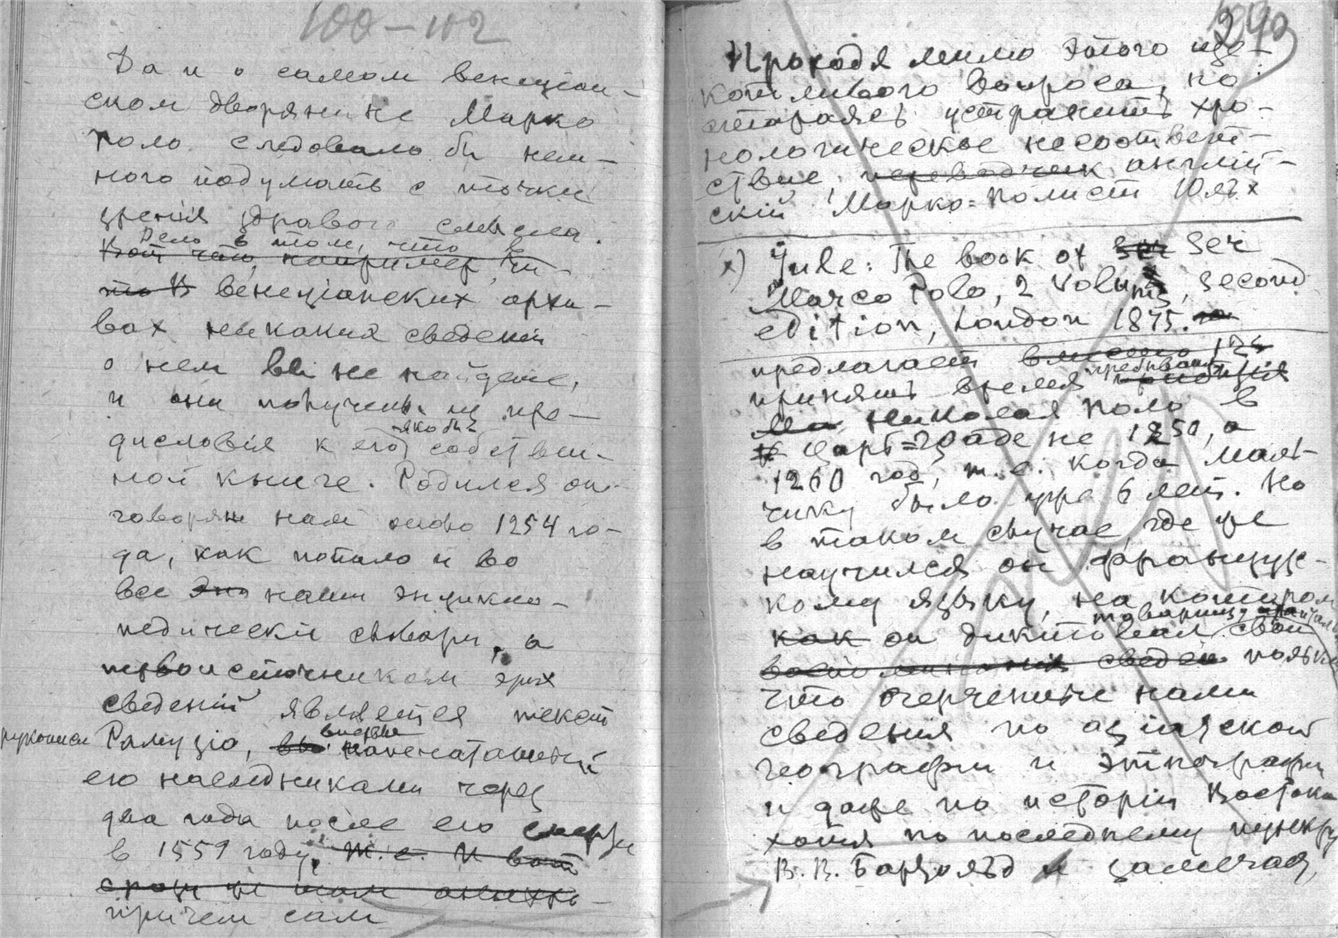 100-102
Да и о самом венециан-
ском дворянине Марко
Поло следовало бы нем-
ного подумать с точки
зрения здравого смысла.
Дело в том, что в
Вот что, например, чи-
то В венецианских архи-
вах никакия сведений
о нем вы не найдете,
и они получены из пре-
якобы
дисловия к его собствен-
ной книге. Родился он
говорят нам около 1254 го-
да, как попало и во
все наши энцикло-
педическия словари, а
первоисточником этих
сведений является текст
рукописи Рамузіо, впервые напечатанный
его наследниками через
два года после его смерти
в 1559 году, т.е. И вот
причем сам
Проходя мимо этого ще-
котливого вопроса, но
стараясь устранить хро-
нологическое несоответ-
ствие, переводчик англій-
скій Марко-Полист Юлъ x
x) Yule: The book of Ser
Marco Polo, 2 Volums, second
edition, London 1875.
предлагает вместо 125
принять время пребывания
Николая Поло в
Царь=Граде не 1250, а
1260 год, т.е. когда маль-
чику было уже 6 лет. Но
в таком случае, где же
научился он француз-
кому языку, на котором
как он диктовал свои
товарищу
что очерченные нами
сведения по азіатской
географіи и этнографіи
и даже по исторіи Востока
хотя по последнему пункту
В. В. Бартольд и замечая,